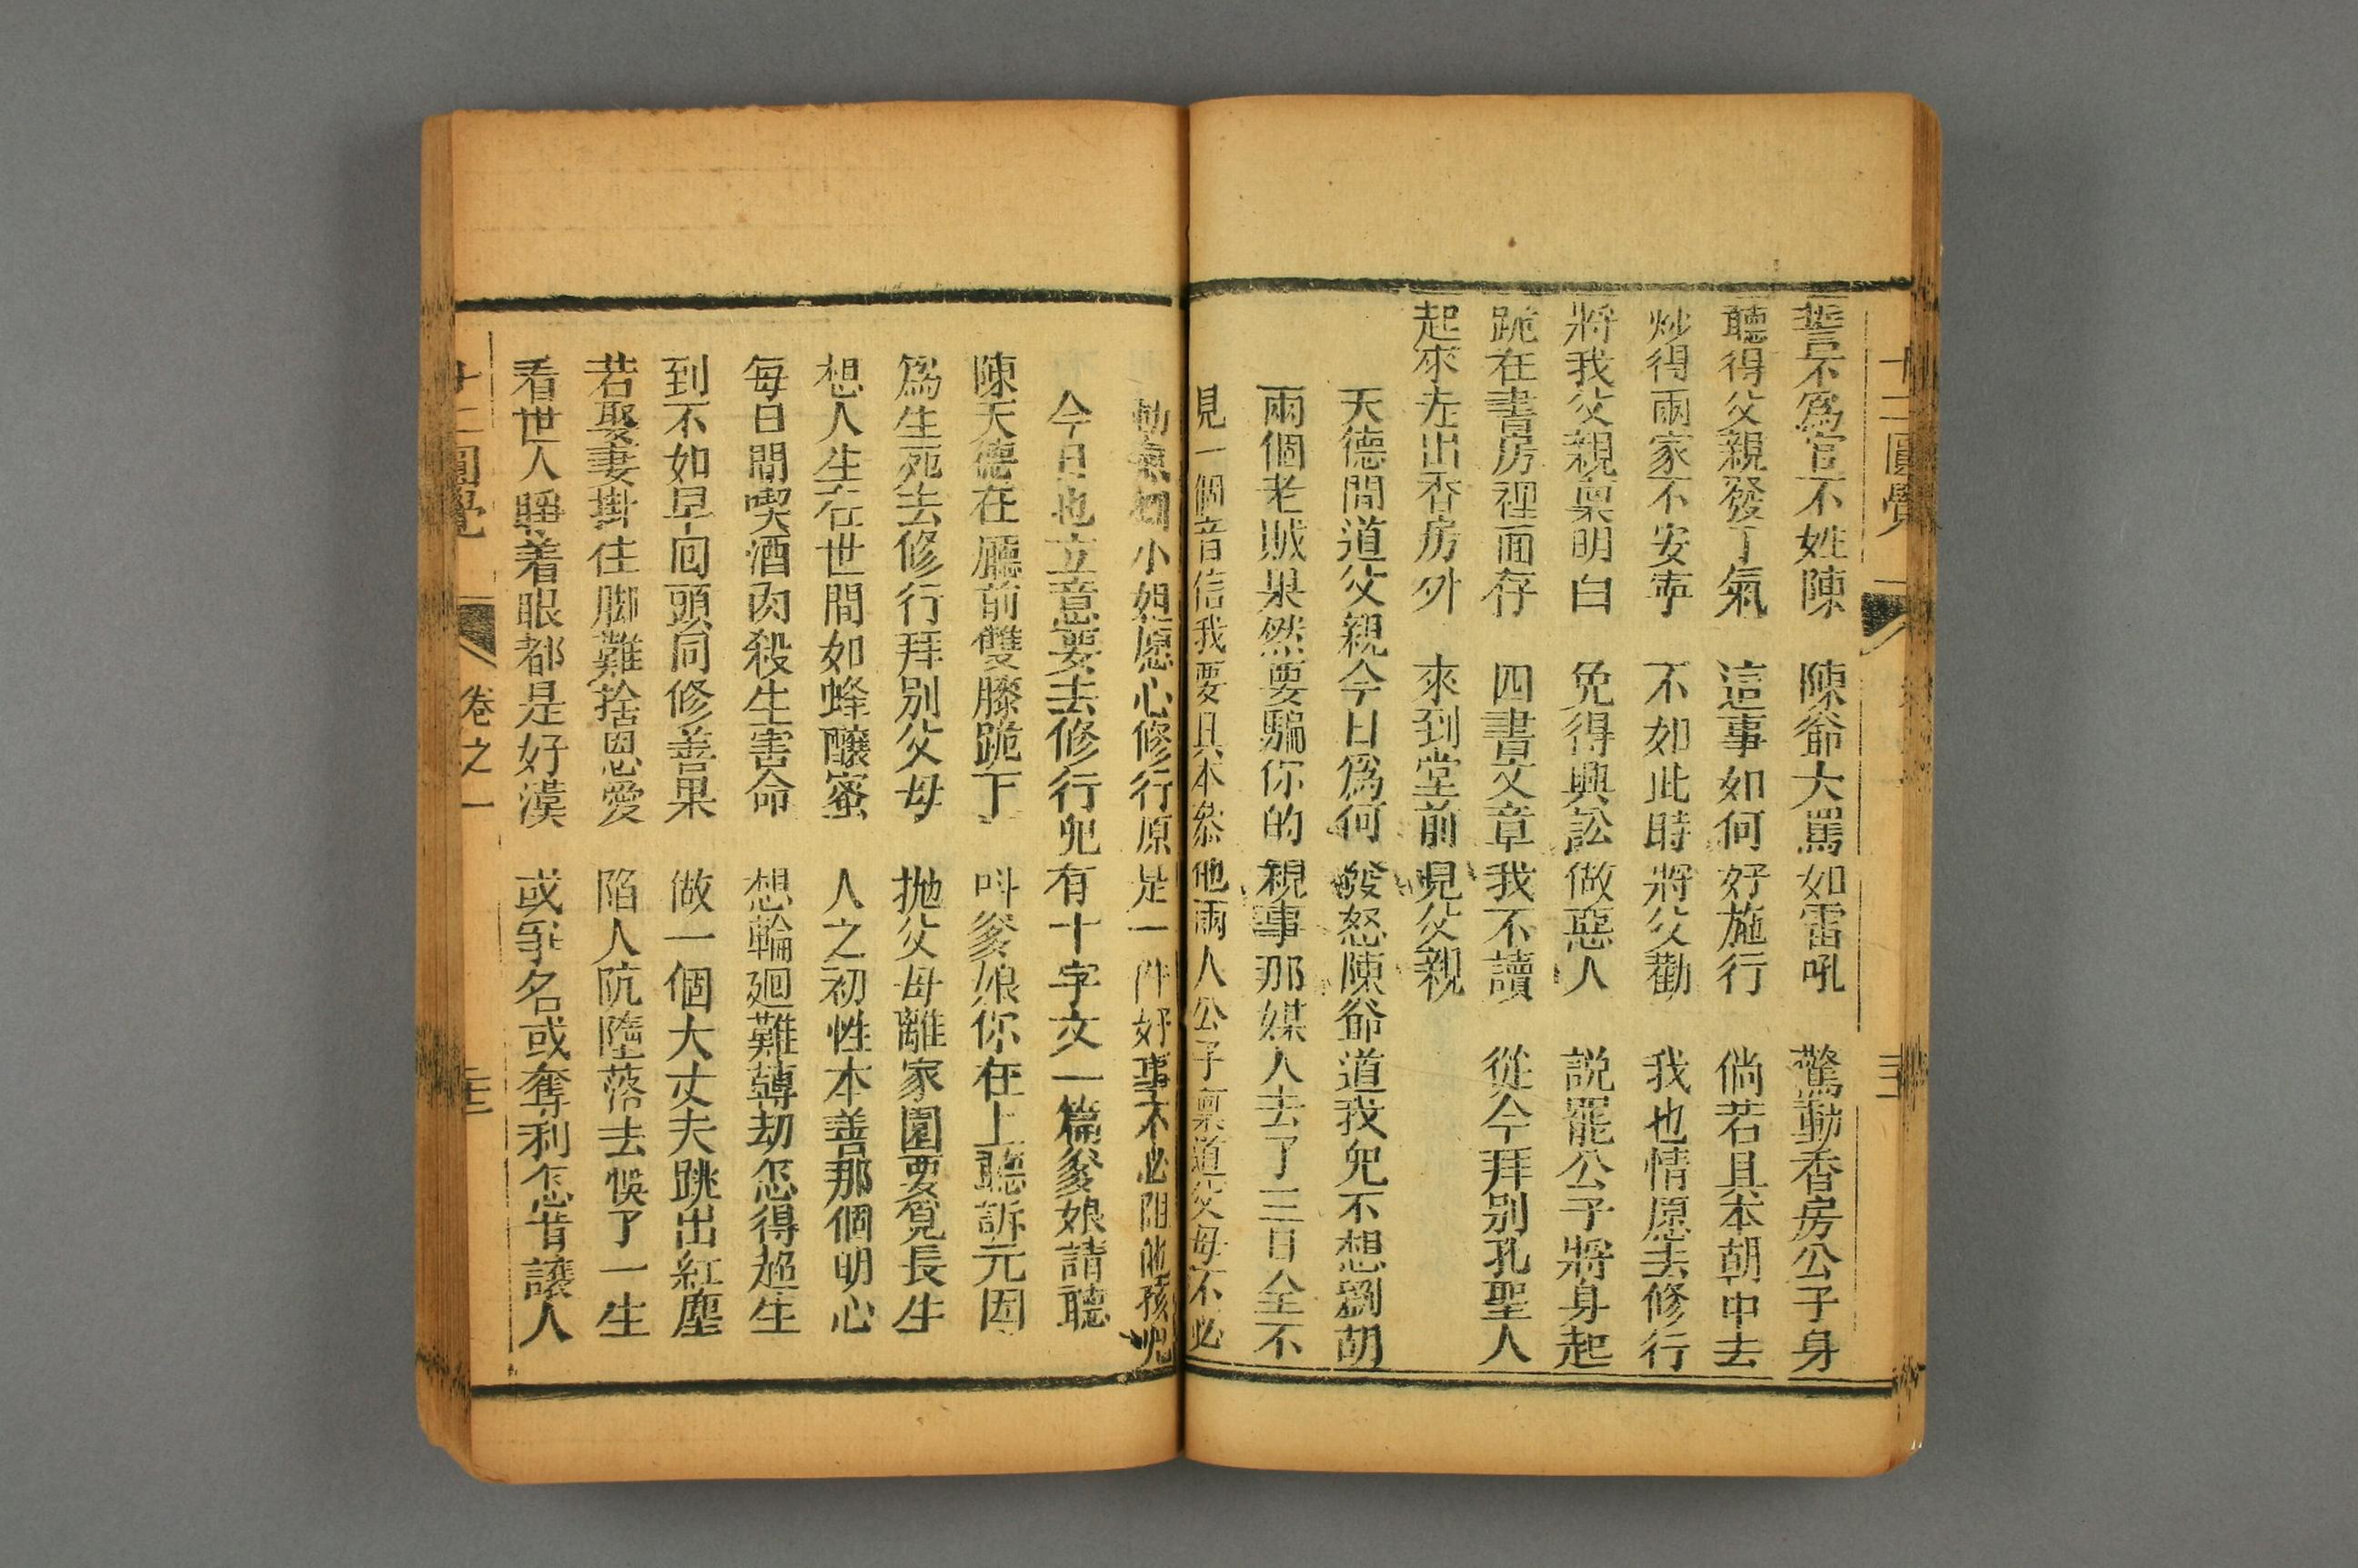 十二圓覺
誓不爲官不姓陳 陳爺大罵如雷吼 驚動香房公子身
聽得父親發了氣 這事如何好施行 倘若具本朝中去
炒得兩家不安寕 不如此時將父勸 我也情愿去修行
將我父親稟明白 免得興訟做惡人 説罷公子將身起
跪在書房裡面存 四書文章我不讀 從今拜别孔聖人
起來左出香房外 來到堂前見父親
天德開道父親今日爲何發怒陳爺道我兒不想劉胡
兩個老賊果然要騙你的親事那媒人去了三日全不
見一個音信我要具本叅他兩人公子稟道父母不必
動氣 小姐愿心修行原是一件好事不必阻他孩兒
今日也立意要去修行兒有十字文一篇爹娘請聽
陳天德在廳前雙膝跪下 呌爹娘你在上聽訴元因
爲生死去修行拜别父母 抛父母離家園要覓長生
想人生在世間如蜂釀蜜 人之初性本善那個明心
每日間喫酒肉殺生害命 想輪廻難轉劫怎得超生
到不如早回頭同修善果 做一個大丈夫跳出紅塵
若娶妻掛住脚難捨恩愛 陷人阬墮落去悞了一生
看世人睡着眼都是好漢 或爭名或奪利怎肯讓人
十二圓覺 卷之一